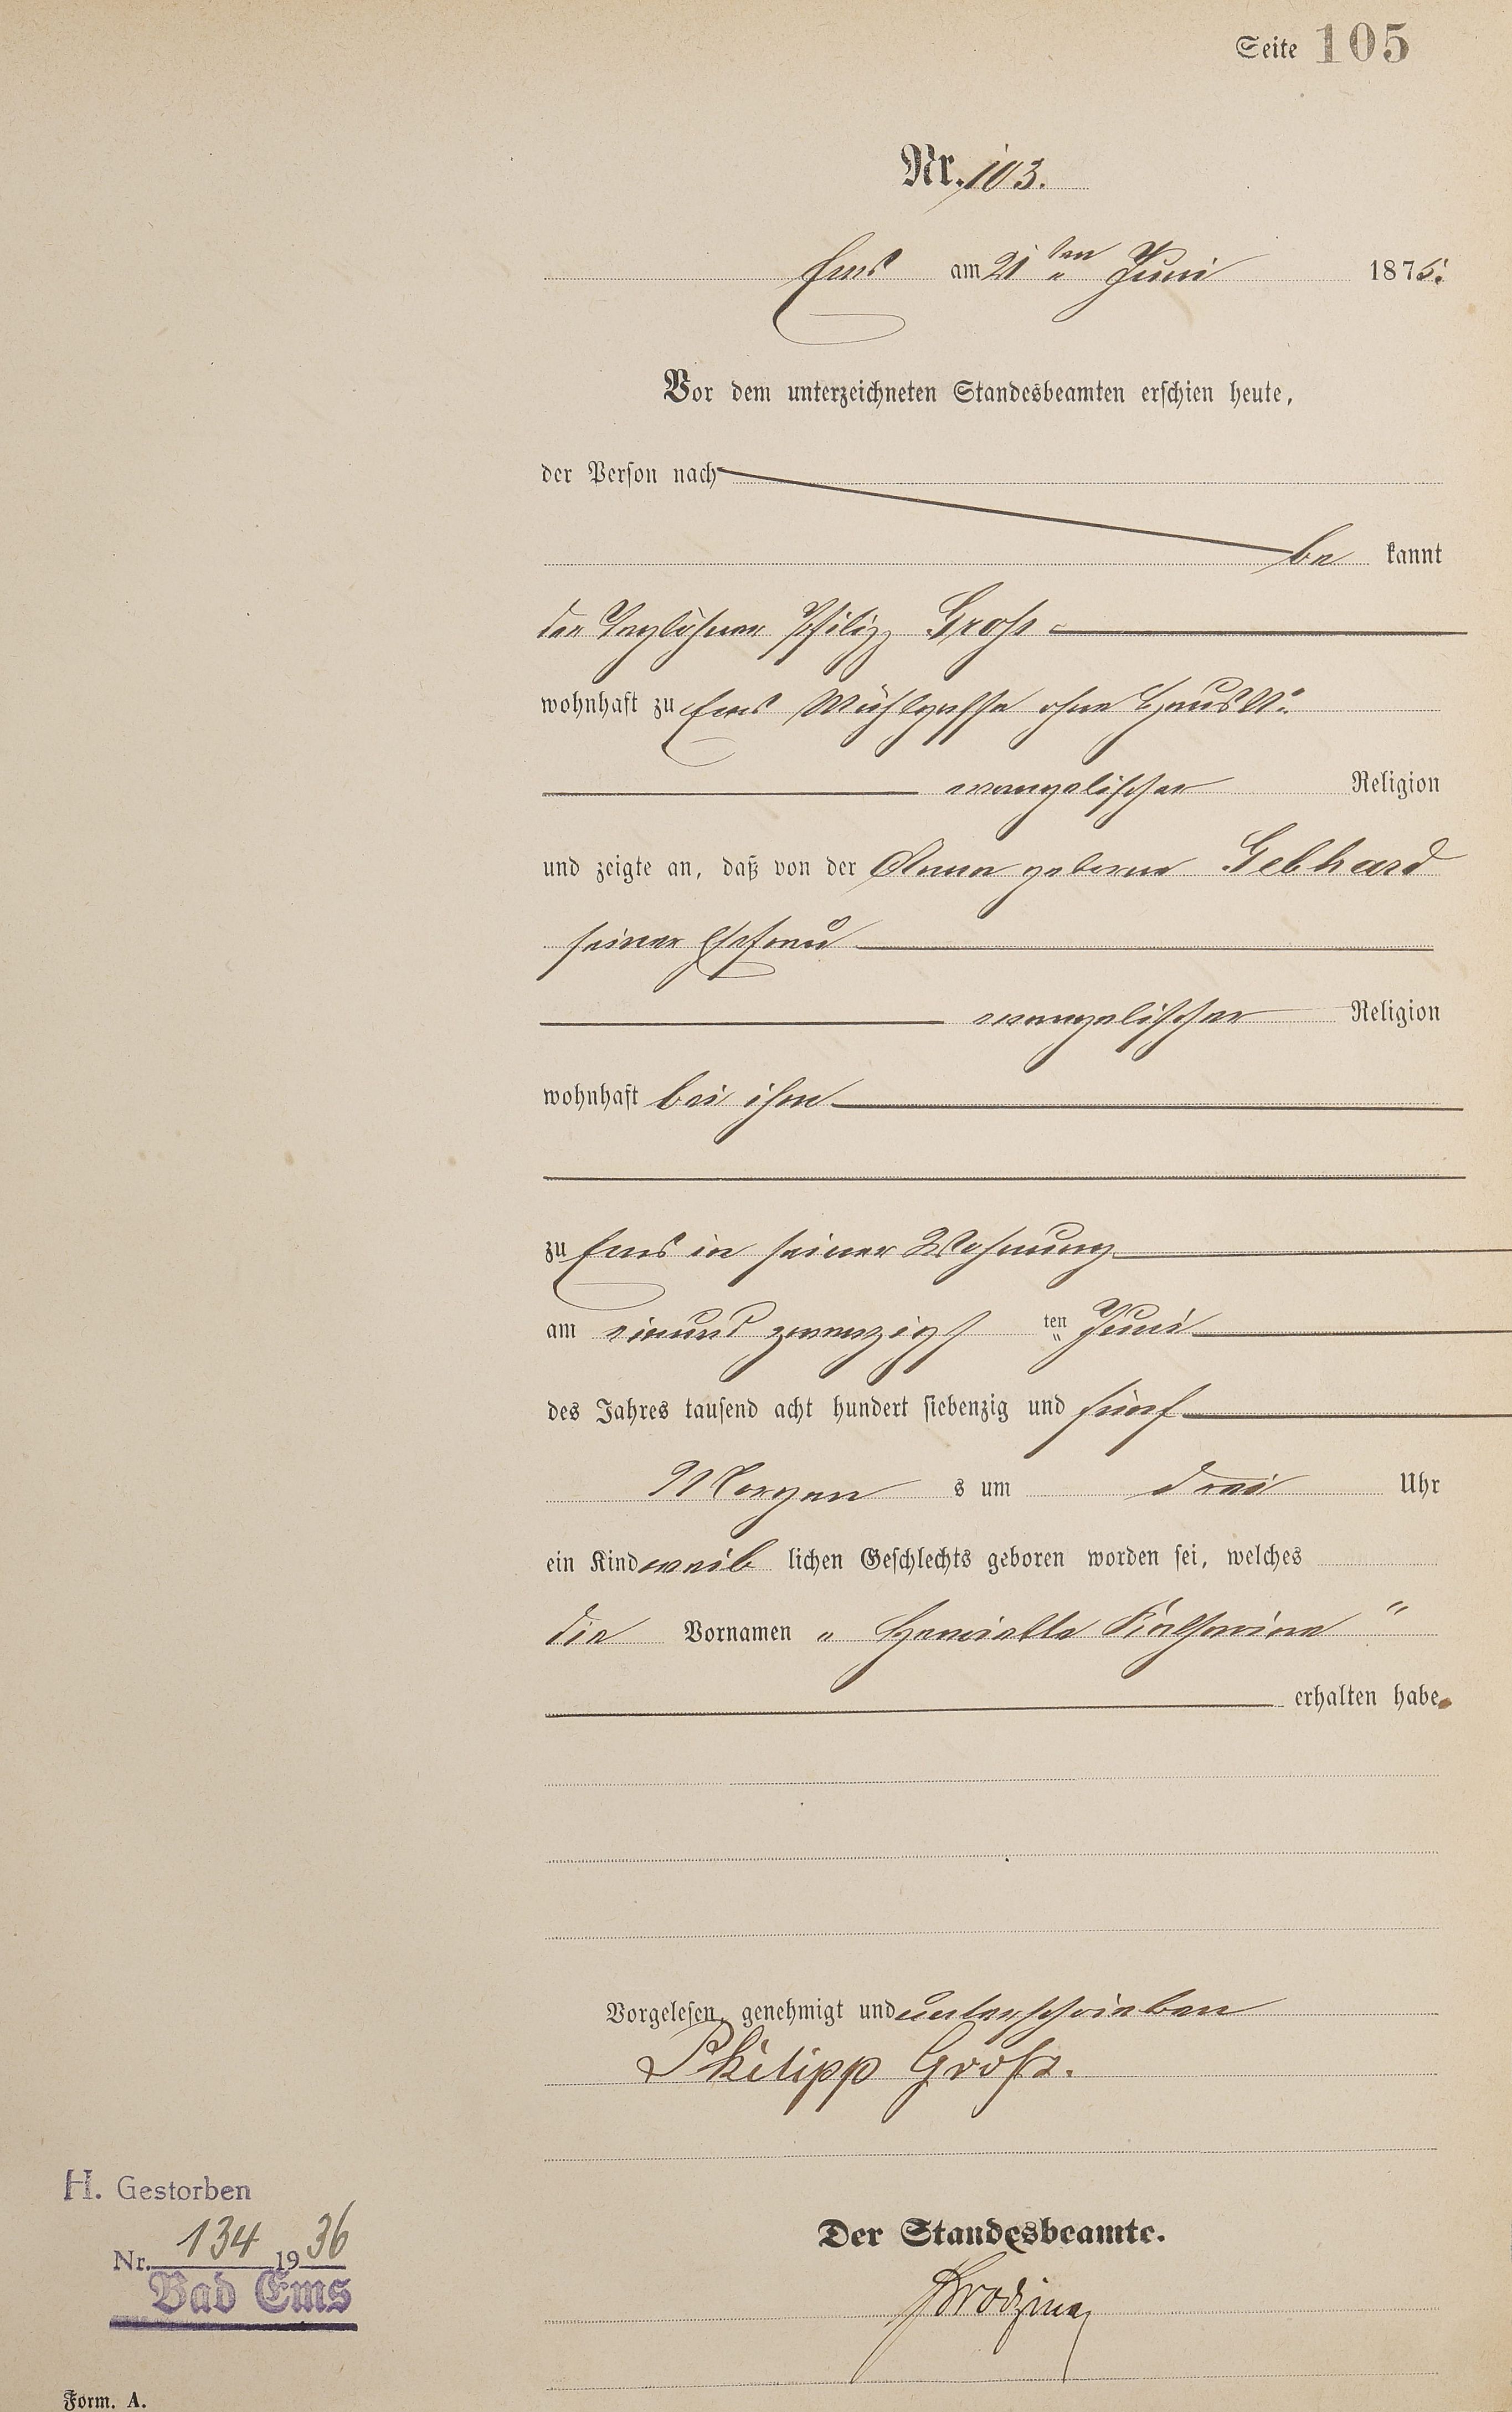 Seite 105
Nr. 103.
Ems am 21ten Juni 1875.
Vor dem unterzeichneten Standesbeamten erschien heute,
der Person nach
be kannt
der Taglöhner Philipp Gross
wohnhaft zu Ems Mühlgasse ohne Haus No.
evangelischer Religion
und zeigte an, daß von der Anna geborne Gebhard
seiner Ehefrau
evangelischer Religion
wohnhaft bei ihm
zu Ems in seiner Wohnung
am einund zwanzigs ten Juni
des Jahres tausend acht hundert siebenzig und fünf
Morgen s um drei Uhr
ein Kind weib lichen Geschlechts geboren worden sei, welches
die Vornamen „ Henriette Katharina "
erhalten habe.
Vorgelesen, genehmigt und unterschrieben
Philipp Gross.
H. Gestorben
Nr. 134 1936
Bad Ems
Der Standesbeamte.
Form. A.